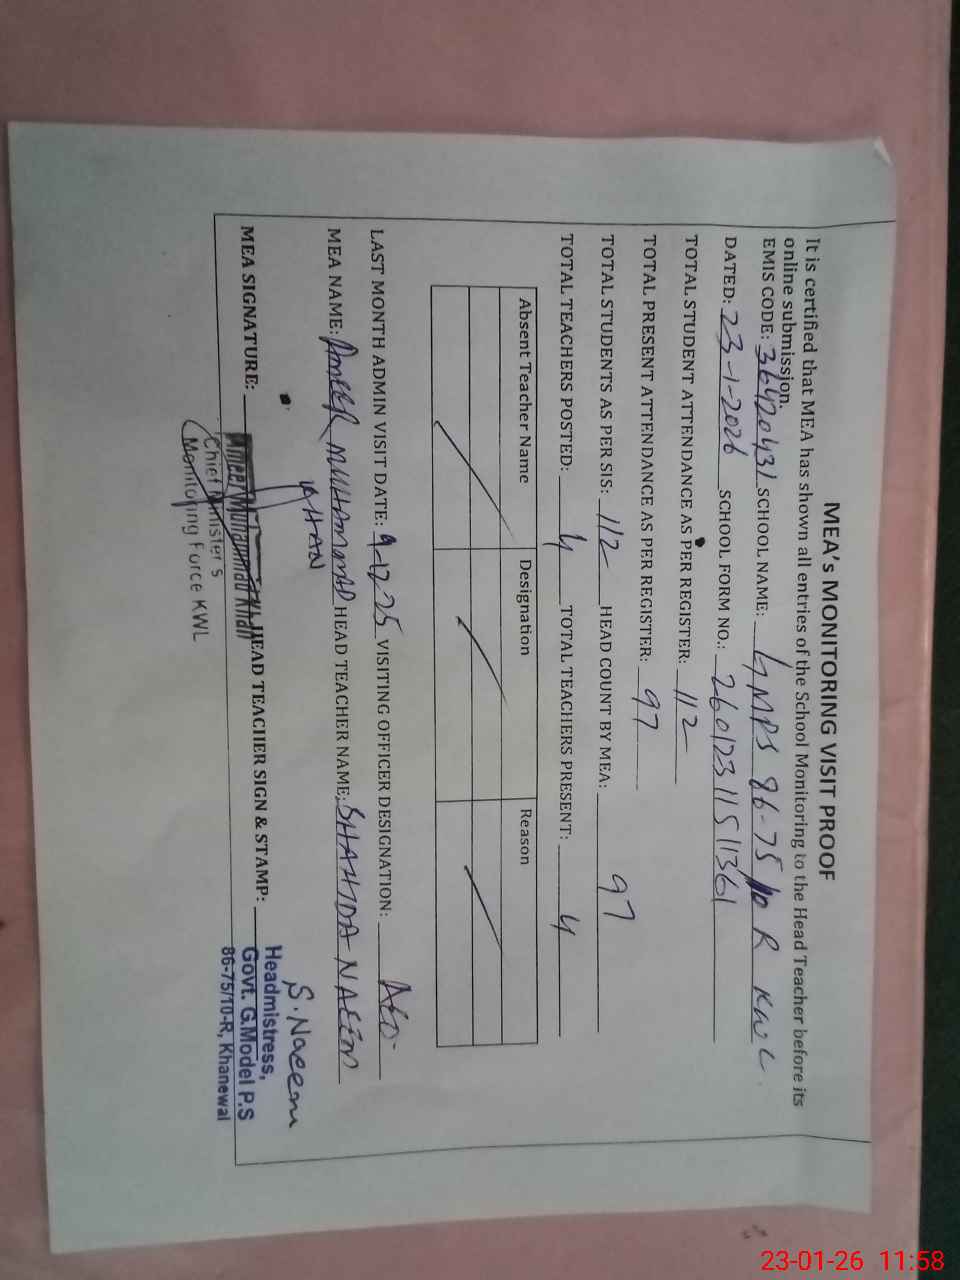 MEA's MONITORING VISIT PROOF
It is certified that MEA has shown all entries of the School Monitoring to the Head Teacher before its
online submission.
EMIS CODE: 36420431 SCHOOL NAME: GMPS 86-75/10 R KWL
DATED: 23-1-2026 SCHOOL FORM NO.: 26012311511361
TOTAL STUDENT ATTENDANCE AS PER REGISTER: 112
TOTAL PRESENT ATTENDANCE AS PER REGISTER: 97
TOTAL STUDENTS AS PER SIS: 112 HEAD COUNT BY MEA: 97
TOTAL TEACHERS POSTED: 4 TOTAL TEACHERS PRESENT: 4
Absent Teacher Name Designation Reason
LAST MONTH ADMIN VISIT DATE: 9-12-25 VISITING OFFICER DESIGNATION: AEO-
MEA NAME: AMEER MUHAMMAD HEAD TEACHER NAME: SHAHIDA NAEEM
KHAN
S. Naeem
MEA SIGNATURE: HEAD TEACHER SIGN & STAMP:
Ameer Muhammad Khan
Chief Minister's
Monitoring Force KWL
Headmistress,
Govt. G.Model P.S
86-75/10-R, Khanewal
23-01-26 11:58